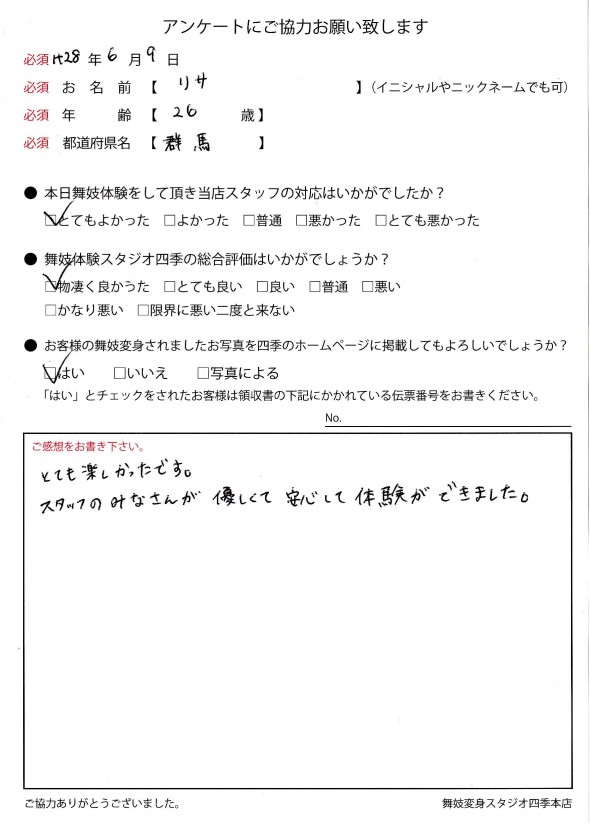 アンケートにご協力お願い致します
必須 H28 年 6 月 9 日
必須 お 名 前 【 リサ 】（イニシャルやニックネームでも可）
必須 年 齢 【 26 歳】
必須 都道府県名 【 群馬 】
● 本日舞妓体験をして頂き当店スタッフの対応はいかがでしたか？
□とてもよかった □よかった □普通 □悪かった □とても悪かった
● 舞妓体験スタジオ四季の総合評価はいかがでしょうか？
□物凄く良かうた □とても良い □良い □普通 □悪い
□かなり悪い □限界に悪い二度と来ない
● お客様の舞妓変身されましたお写真を四季のホームページに掲載してもよろしいでしょうか？
□はい □いいえ □写真による
「はい」とチェックをされたお客様は領収書の下記にかかれている伝票番号をお書きください。
No.
ご感想をお書き下さい。
とても楽しかったです。
スタッフのみなさんが 優しくて 安心して 体験ができました。
ご協力ありがとうございました。
舞妓変身スタジオ四季本店